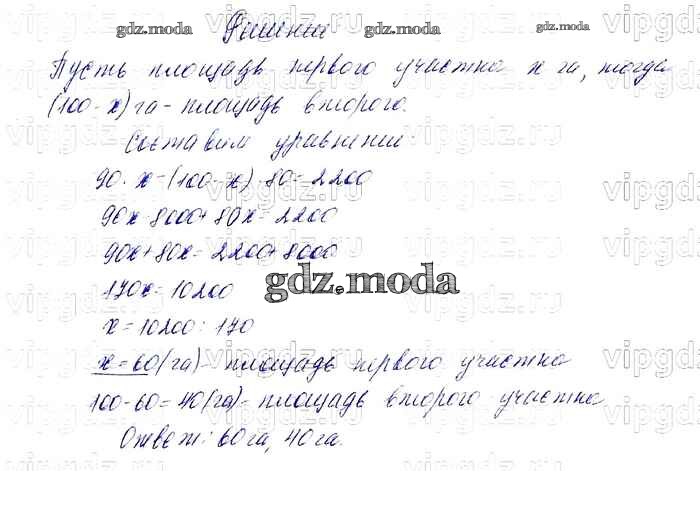 Решение
Пусть площадь первого участка x га, тогда
(100-x) га - площадь второго.
Составим уравнение:
90·x-(100-x)·80=2200
90x-8000+80x=2200
90x+80x=2200+8000
170x=10200
gdz.moda
x=10200:170
x=60(га)- площадь первого участка
100-60=40(га)- площадь второго участка
Ответ: 60га, 40га.